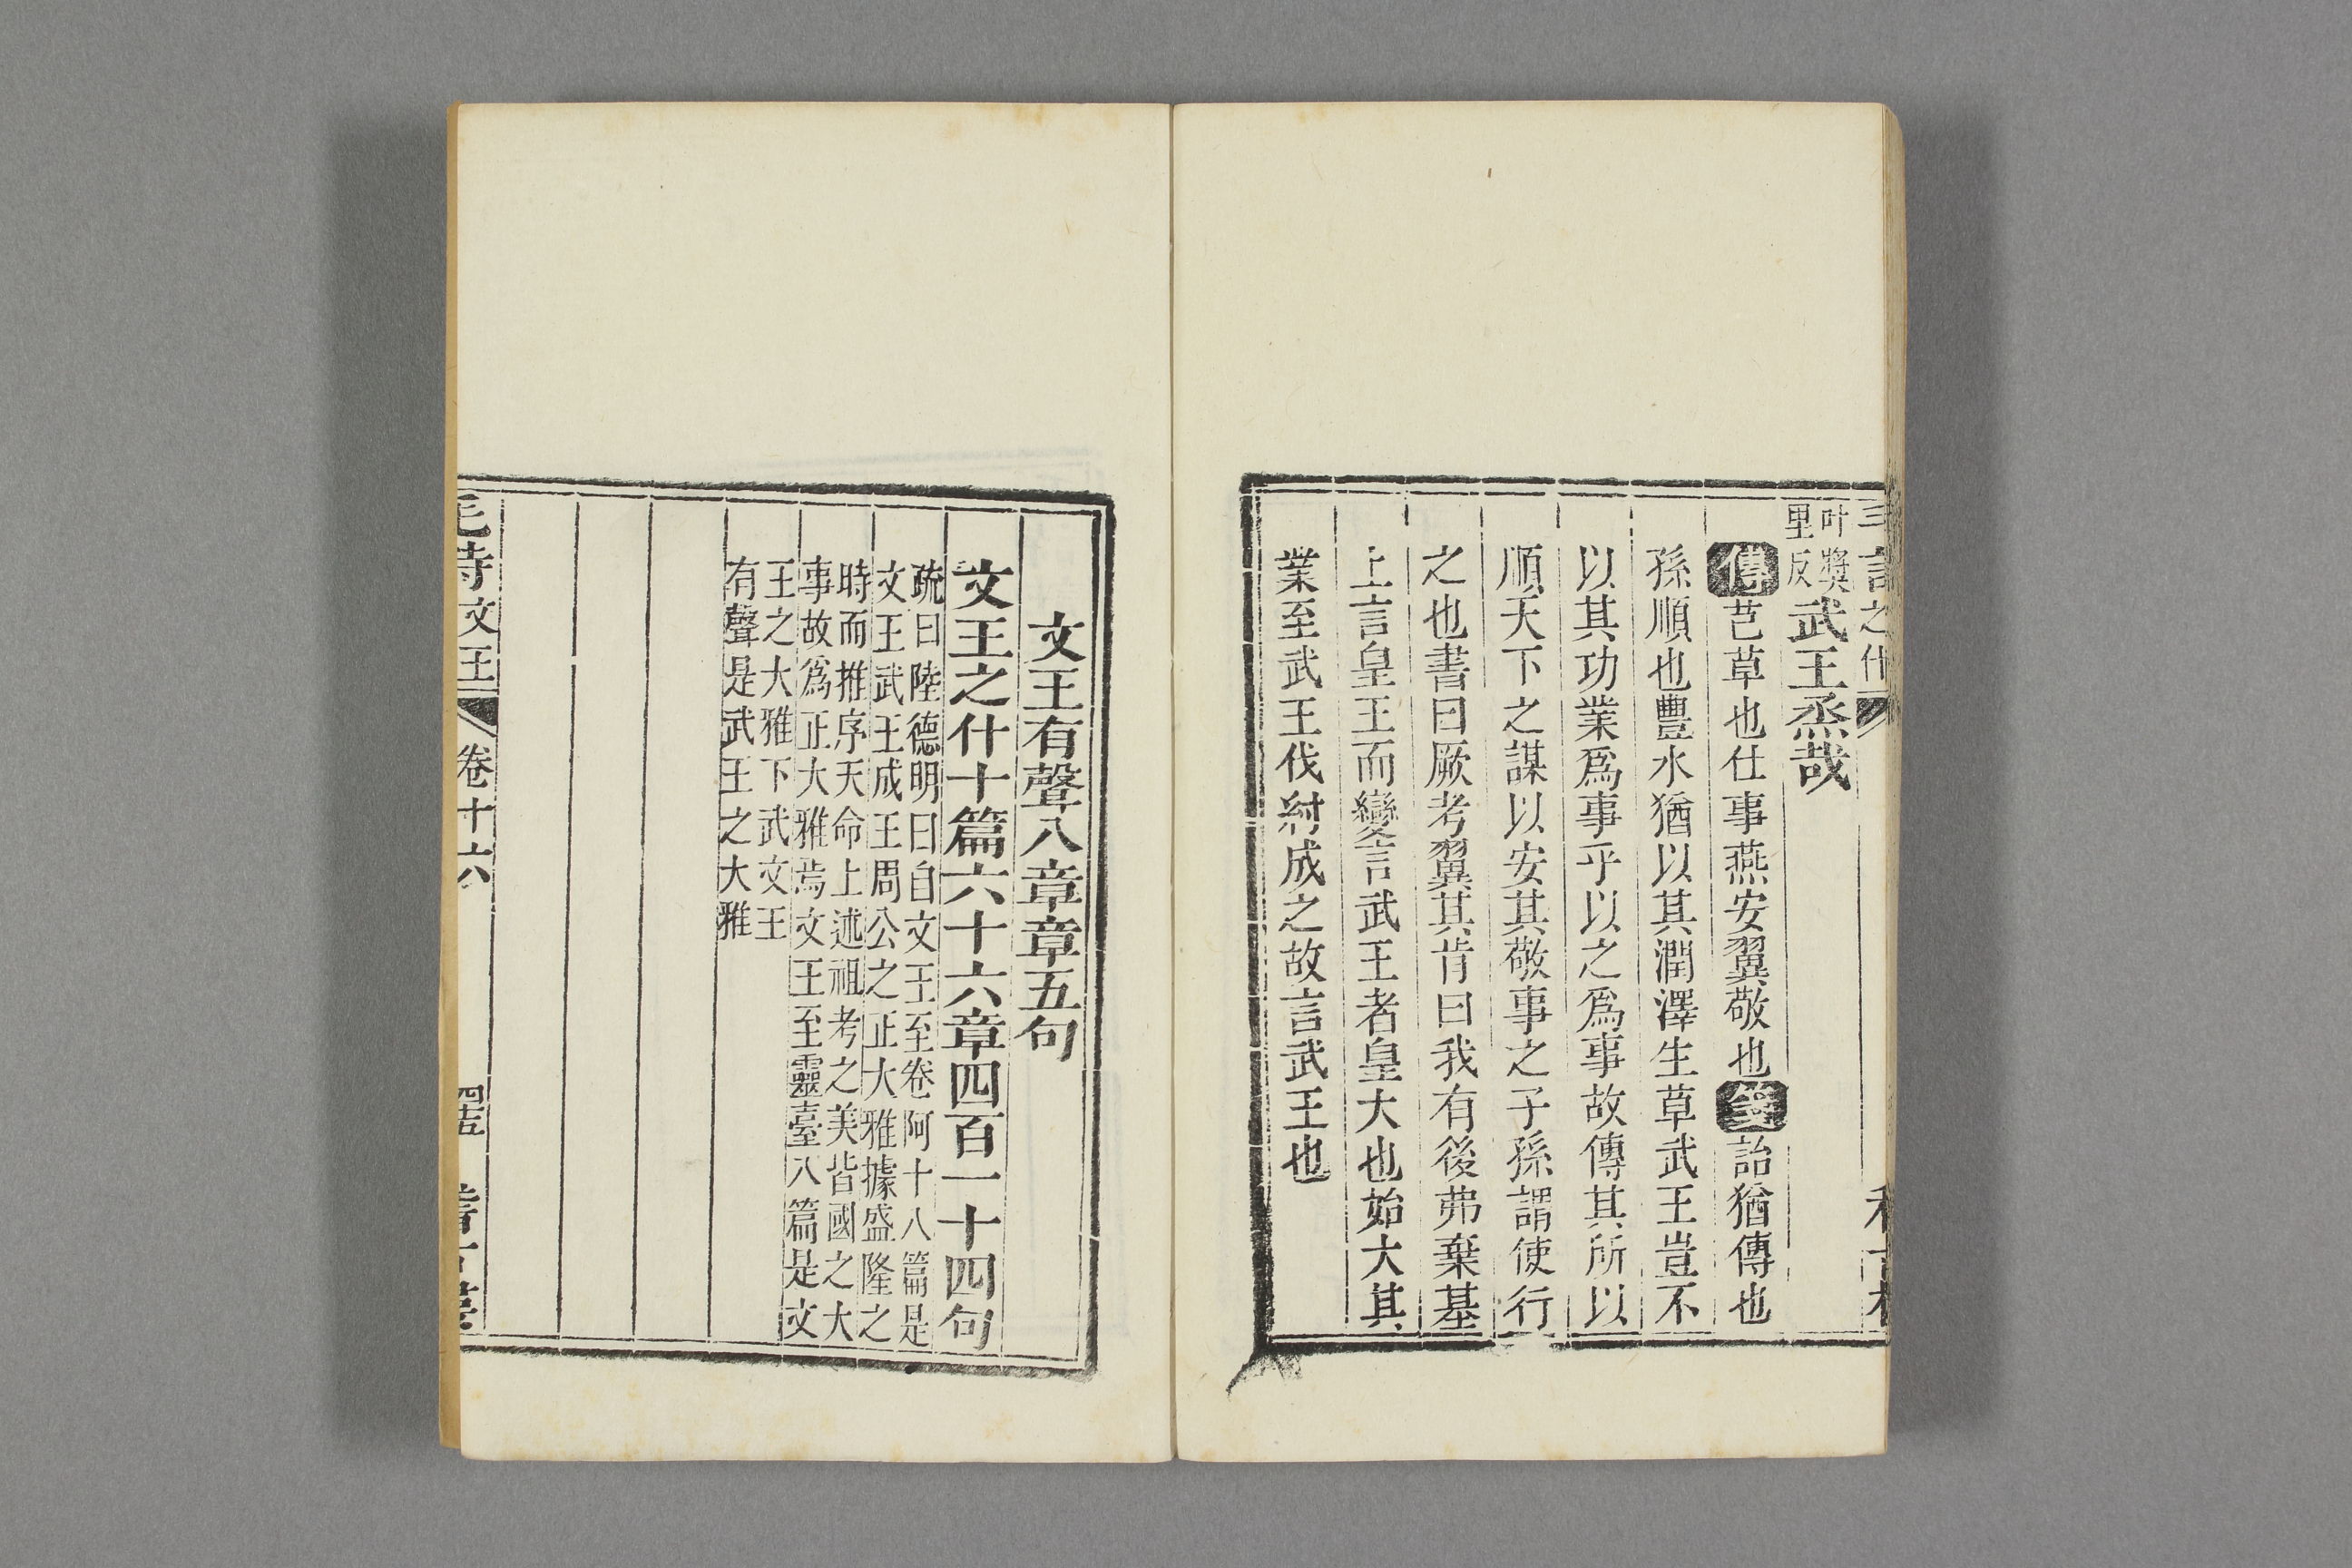 叶獎
里反
武王烝哉
傳芑草也仕事燕安翼敬也箋詒猶傳也
孫順也豐水猶以其潤澤生草武王豈不
以其功業爲事乎以之爲事故傳其所以
順天下之謀以安其敬事之子孫謂使行
之也書曰厥考翼其肯曰我有後弗棄基
上言皇王而變言武王者皇大也始大其
業至武王伐紂成之故言武王也
文王有聲八章章五句
文王之什十篇六十六章四百一十四句
疏曰陸德明曰自文王至卷阿十八篇是
文王武王成王周公之正大雅據盛隆之
時而推序天命上述祖考之美皆國之大
事故爲正大雅焉文王至靈臺八篇是文
王之大雅下武文王
有聲是武王之大雅
毛詩文王
卷十六